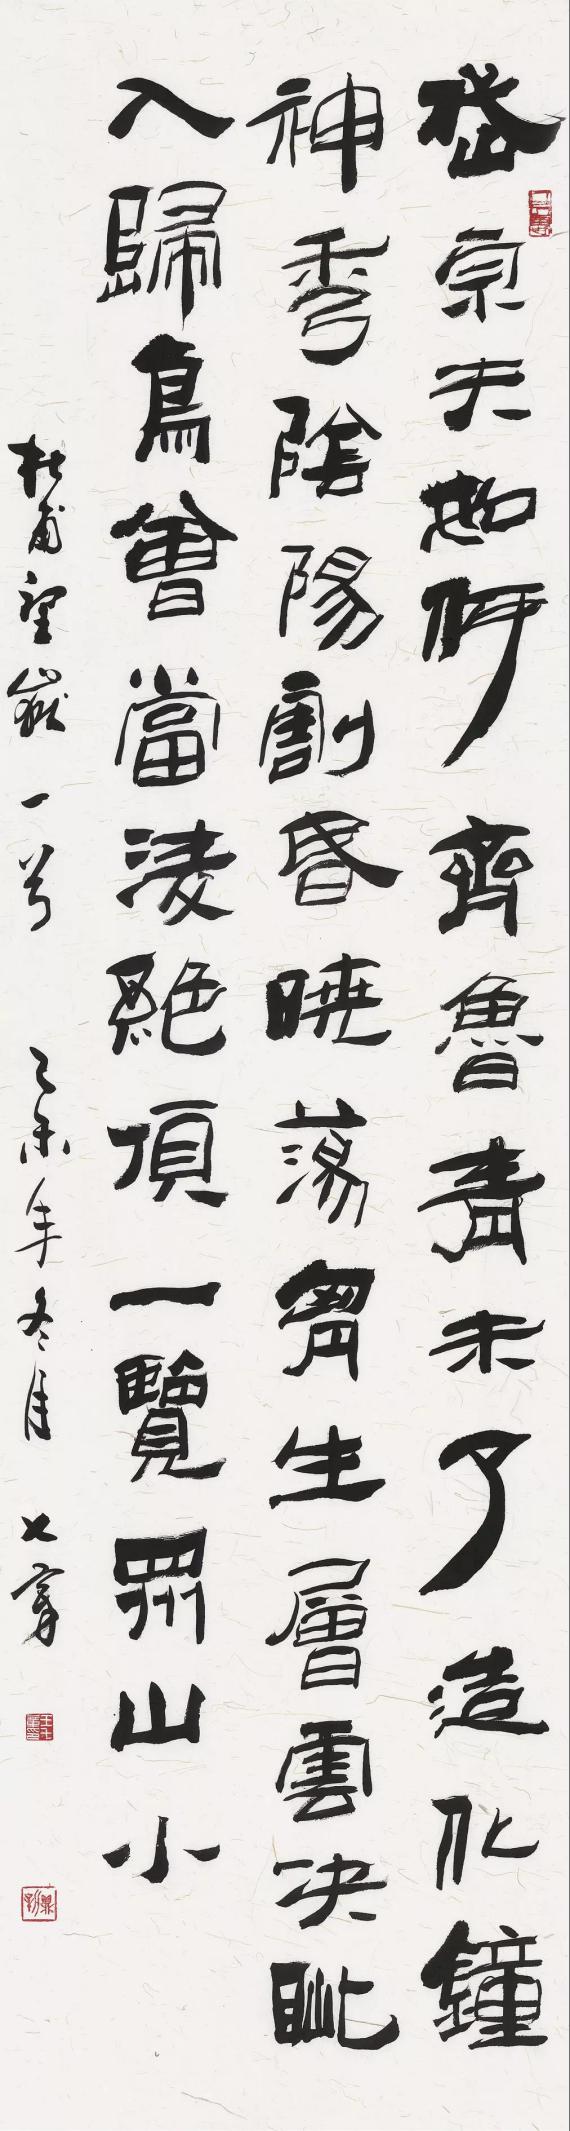 岱宗夫如何齊魯青未了造化鐘
神秀陰陽割昏曉蕩胷生層雲決眦
入歸鳥會當淩絕頂一覽眾山小
杜甫望嶽一首 乙未年冬月